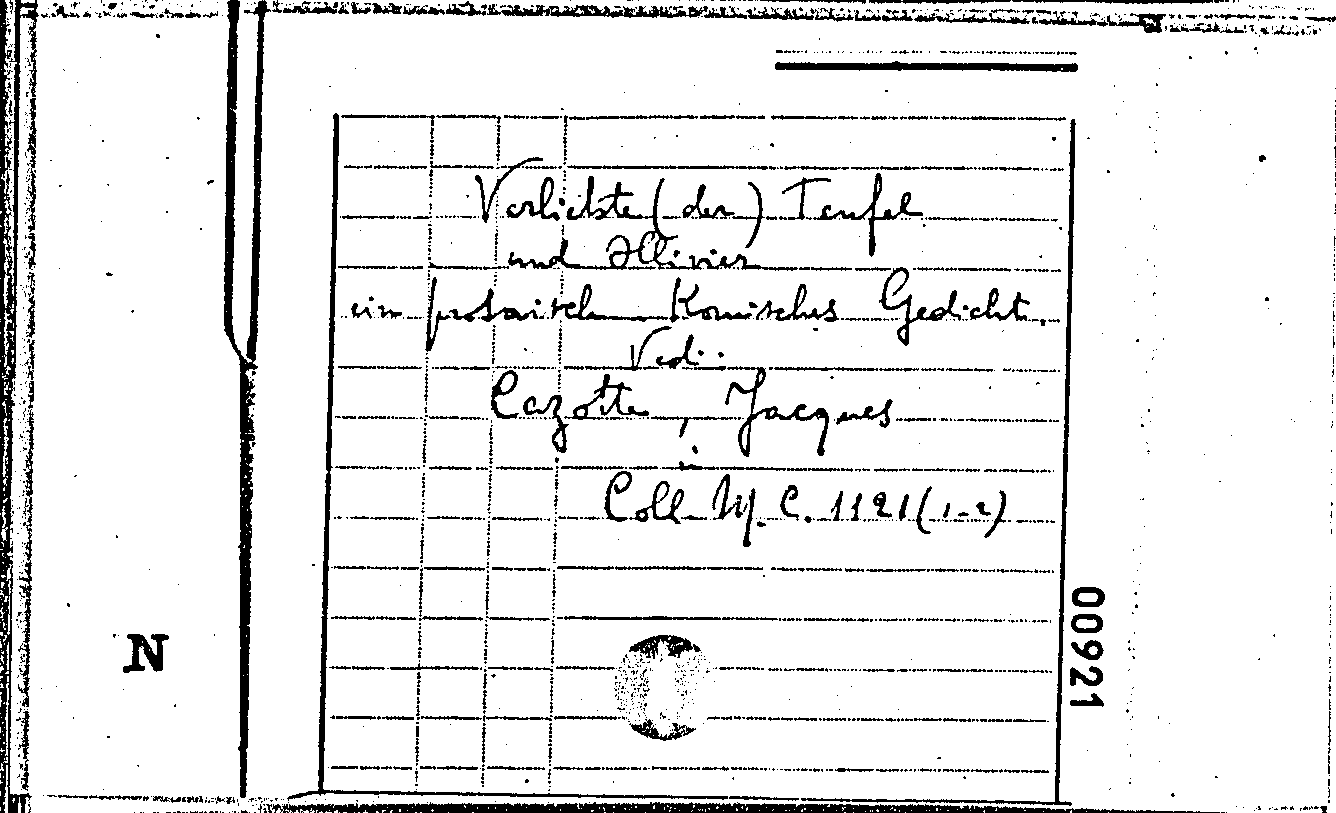 Verliebte (der) Teufel
und Ollivier
ein prosaisch Komisches Gedicht.
Vedi:
Cazotte, Jacques
in
Coll. M. C. 1121 (1-2)
N
00921